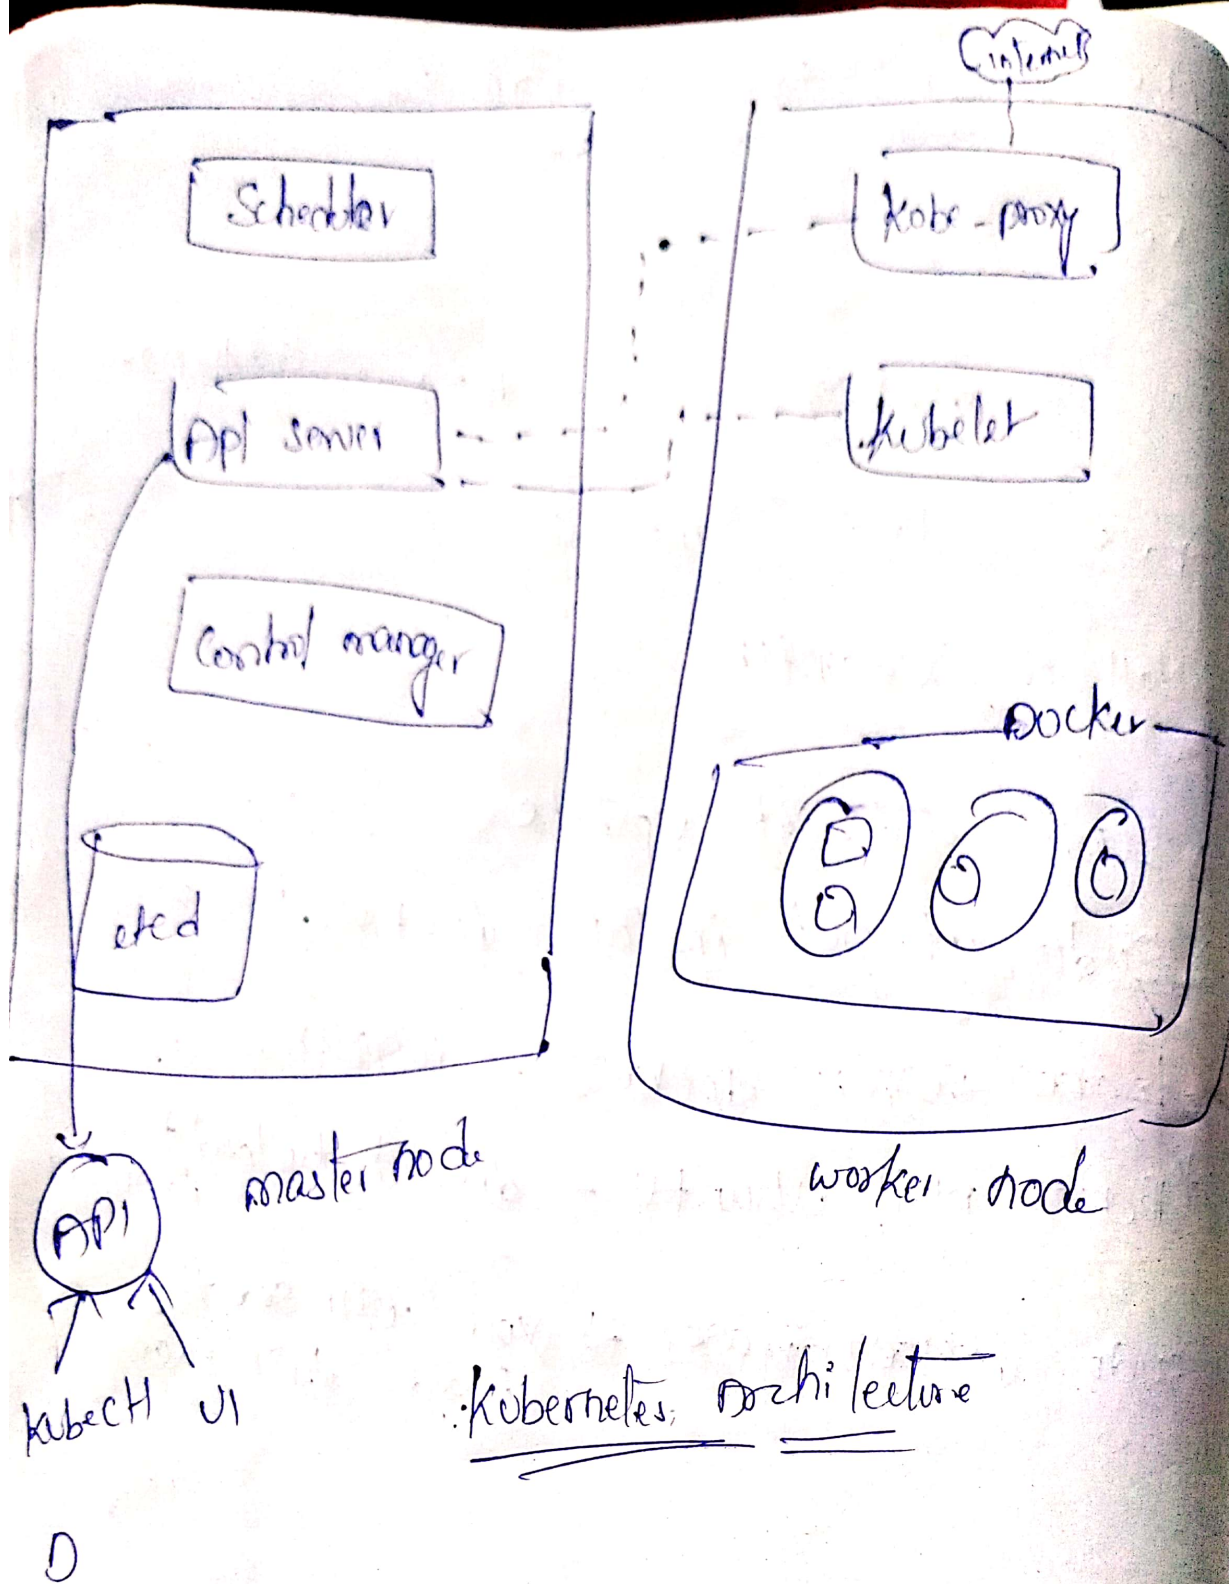 internet
Scheduler
Kube-proxy
Api server
Kubelet
Control manager
Docker
etcd
master node
worker node
API
Kubectl UI
Kubernetes Architecture
D